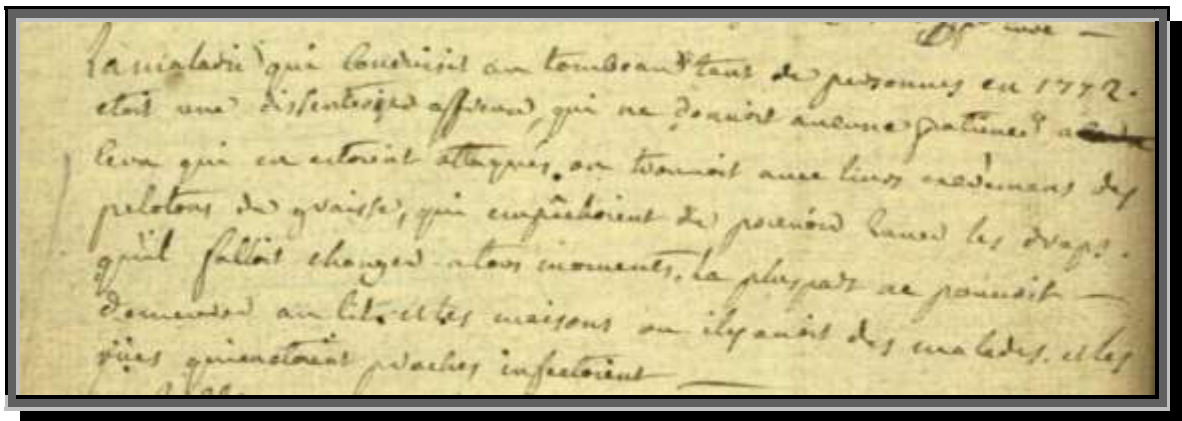 La maladie qui conduisit au tombeau tant de personnes en 1772.
etoit une dissenterie affreuse, qui ne donnoit aucune patience a
ceux qui en estoient attaqués. on trouvoit avec leurs excremens des
pelotons de graisse, qui empêchoient de pouvoir laver les draps.
qu'il falloit changer a tous moments. la pluspart ne pouvoit
demeurer au lit. et les maisons ou il y avoit des malades. et les
rües qui en etoient proches infectoient